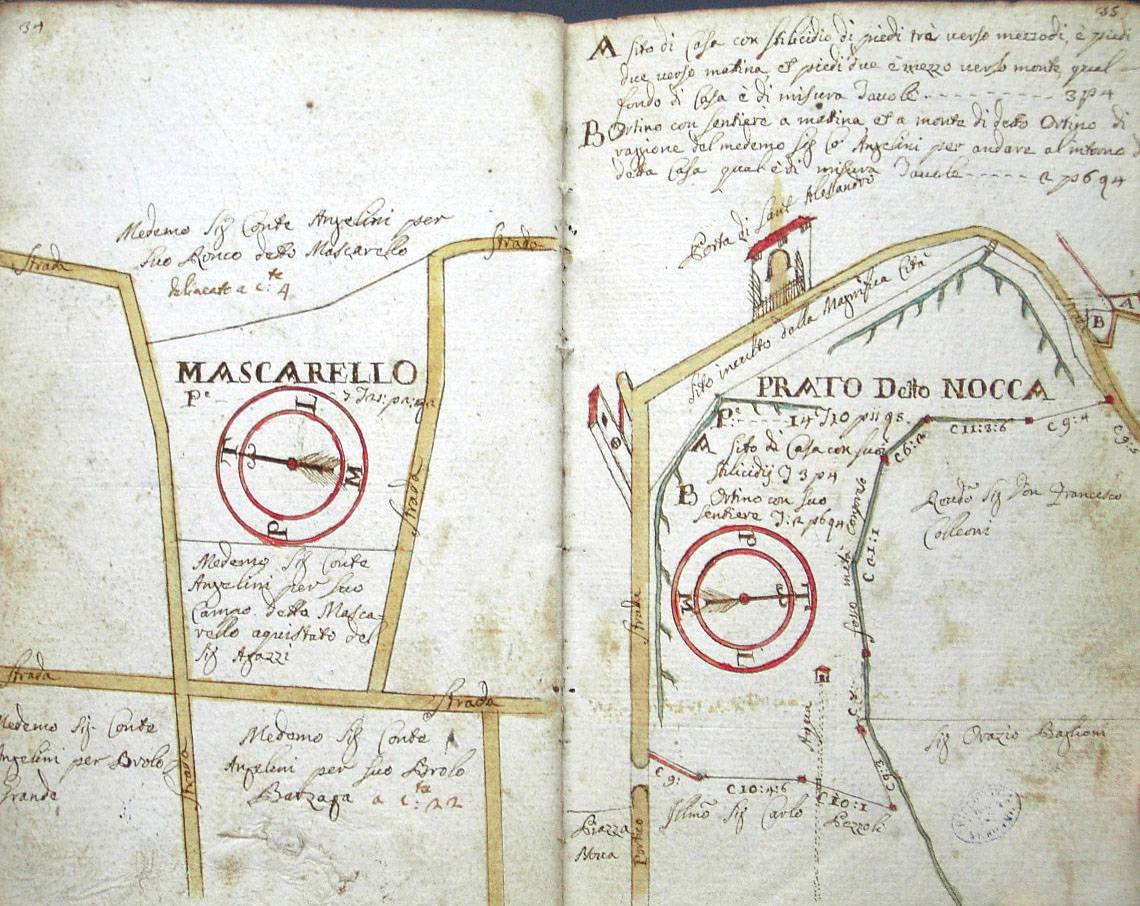 34
Medemo Sig Conte Angelini per
suo Ronco detto Mascarello
delineato a c.te 4
Strada
Strada
MASCARELLO
Pe
L
T
M
P
Strada
Medemo Sig Conte
Angelini per suo
Campo detto Masca=
rello aquistato del
Sig Agazzi
Strada
Strada
Medemo Sig Conte
Angelini per Brolo
Grande
Strada
Medemo Sig Conte
Angelini per suo Brolo
Barzaga a c.te 22
35
A Sito di Casa con stilicidio di piedi trè verso mezzodi, è piedi
due verso matina, et piedi due è mezzo verso monte qual
fondo di Casa è di misura Tavole - - - - - - - - - - 3 p 4
B Ortino con sentiere a matina et a monte di detto Ortino di
ragione del medemo Sig Co Angelini per andare al intorno
detta Casa qual è di misura Tavole - - - - - 2 p 6 q 4
Porta di Sant Alessandro
Sito inculto della Magnifica Cità
A
B
PRATO Detto NOCCA
Pe
A Sito di Casa con suo
stilicidij T 3 p 4
B Ortino con suo
sentiere T: 2 p 6 q 4
C 6: 2
C 11: 8: 6
C 9: 4
C 9: 5
P
M
T
L
Strada
C 21: 1
Sig Don Francesco
Colleoni
Aqua
Sig Orazio Baglioni
C 9:
C 10: 4: 6
C 10: 1
C 9: 3
Illmo Sig Carlo Pezzoli
Piazza
Portico